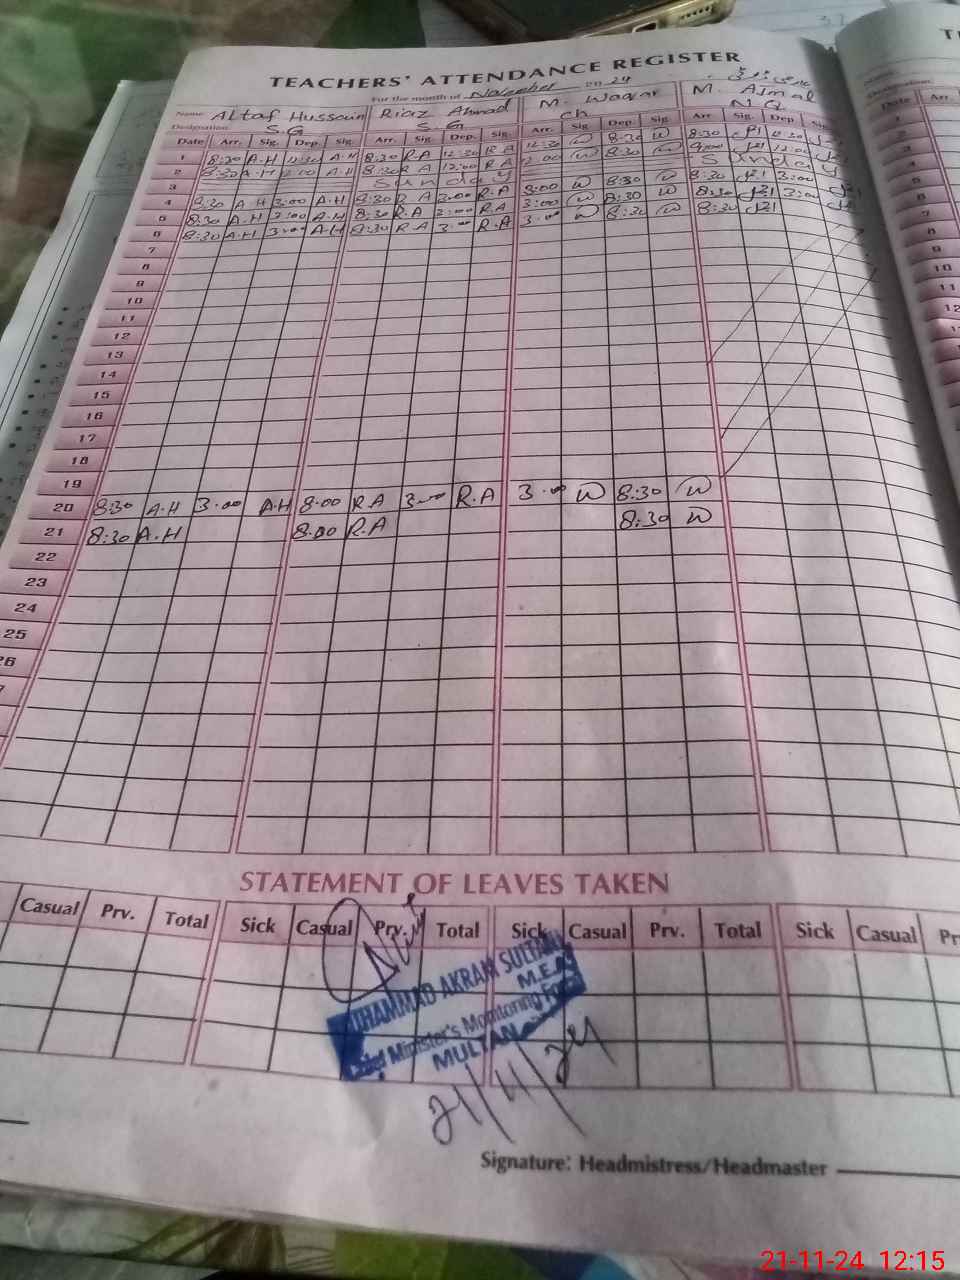 TEACHERS' ATTENDANCE REGISTER
For the month of November 20 24
Name Altaf Hussain Riaz Ahmad M. Waqar M. Ajmal
Designation S.G S.G Ch N.Q
Date Arr. Sig. Dep. Sig. Arr. Sig. Dep. Sig. Arr. Sig Dep. Sig. Arr Sig. Dep Sig
1 8:30 A.H 12:30 A.H 8:30 R.A 12:30 R.A 12:30 W 8:30 W 8:30 12:30
2 8:30 A.H 12:00 A.H 8:30 R.A 12:00 R.A 12:00 W 8:30 W 9:00 12:00
3 Sunday Sunday
4 8:30 A.H 3:00 A.H 8:30 R.A 3:00 R.A 3:00 W 8:30 W 8:30 3:00
5 8:30 A.H 3:00 A.H 8:30 R.A 3:00 R.A 3:00 W 8:30 W 8:30 3:00
6 8:30 A.H 3:00 A.H 8:30 R.A 3:00 R.A 3:00 W 8:30 W 8:30
7
8
9
10
11
12
13
14
15
16
17
18
19
20 8:30 A.H 3:00 A.H 8:00 R.A 3:00 R.A 3:00 W 8:30 W
21 8:30 A.H 8:00 R.A 8:30 W
22
23
24
25
26
STATEMENT OF LEAVES TAKEN
Casual Prv. Total Sick Casual Prv. Total Sick Casual Prv. Total Sick Casual
MUHAMMAD AKRAM SULTAN
M.E.A
Chief Minister's Monitoring Force
MULTAN
21/11/24
Signature: Headmistress/Headmaster
Date Arr.
1
2
3
4
5
6
7
8
9
10
11
12
21-11-24 12:15